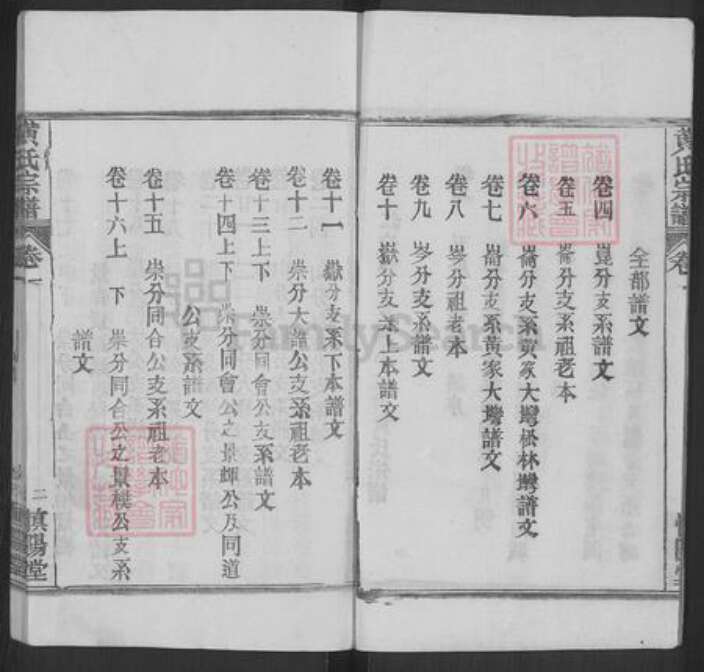 黃氏宗譜
卷一
全部譜文
卷四 崑分支系譜文
卷五 崙分支系祖老本
卷六 崙分支系黃家大塆松林塆譜文
卷七 崙分支系黃家大塆譜文
卷八 岑分祖老本
卷九 岑分支系譜文
卷十 嶽分支系上本譜文
卷十一 嶽分支系下本譜文
卷十二 崇分大謹公支系祖老本
卷十三上下 崇分同會公支系譜文
卷十四上下 崇分同會公之景輝公及同道
公支系譜文
卷十五 崇分同合公支系祖老本
卷十六上 下 崇分同合公之景樸公支系
譜文
黃氏宗譜
卷一
二
慎陽堂
FamilySearch